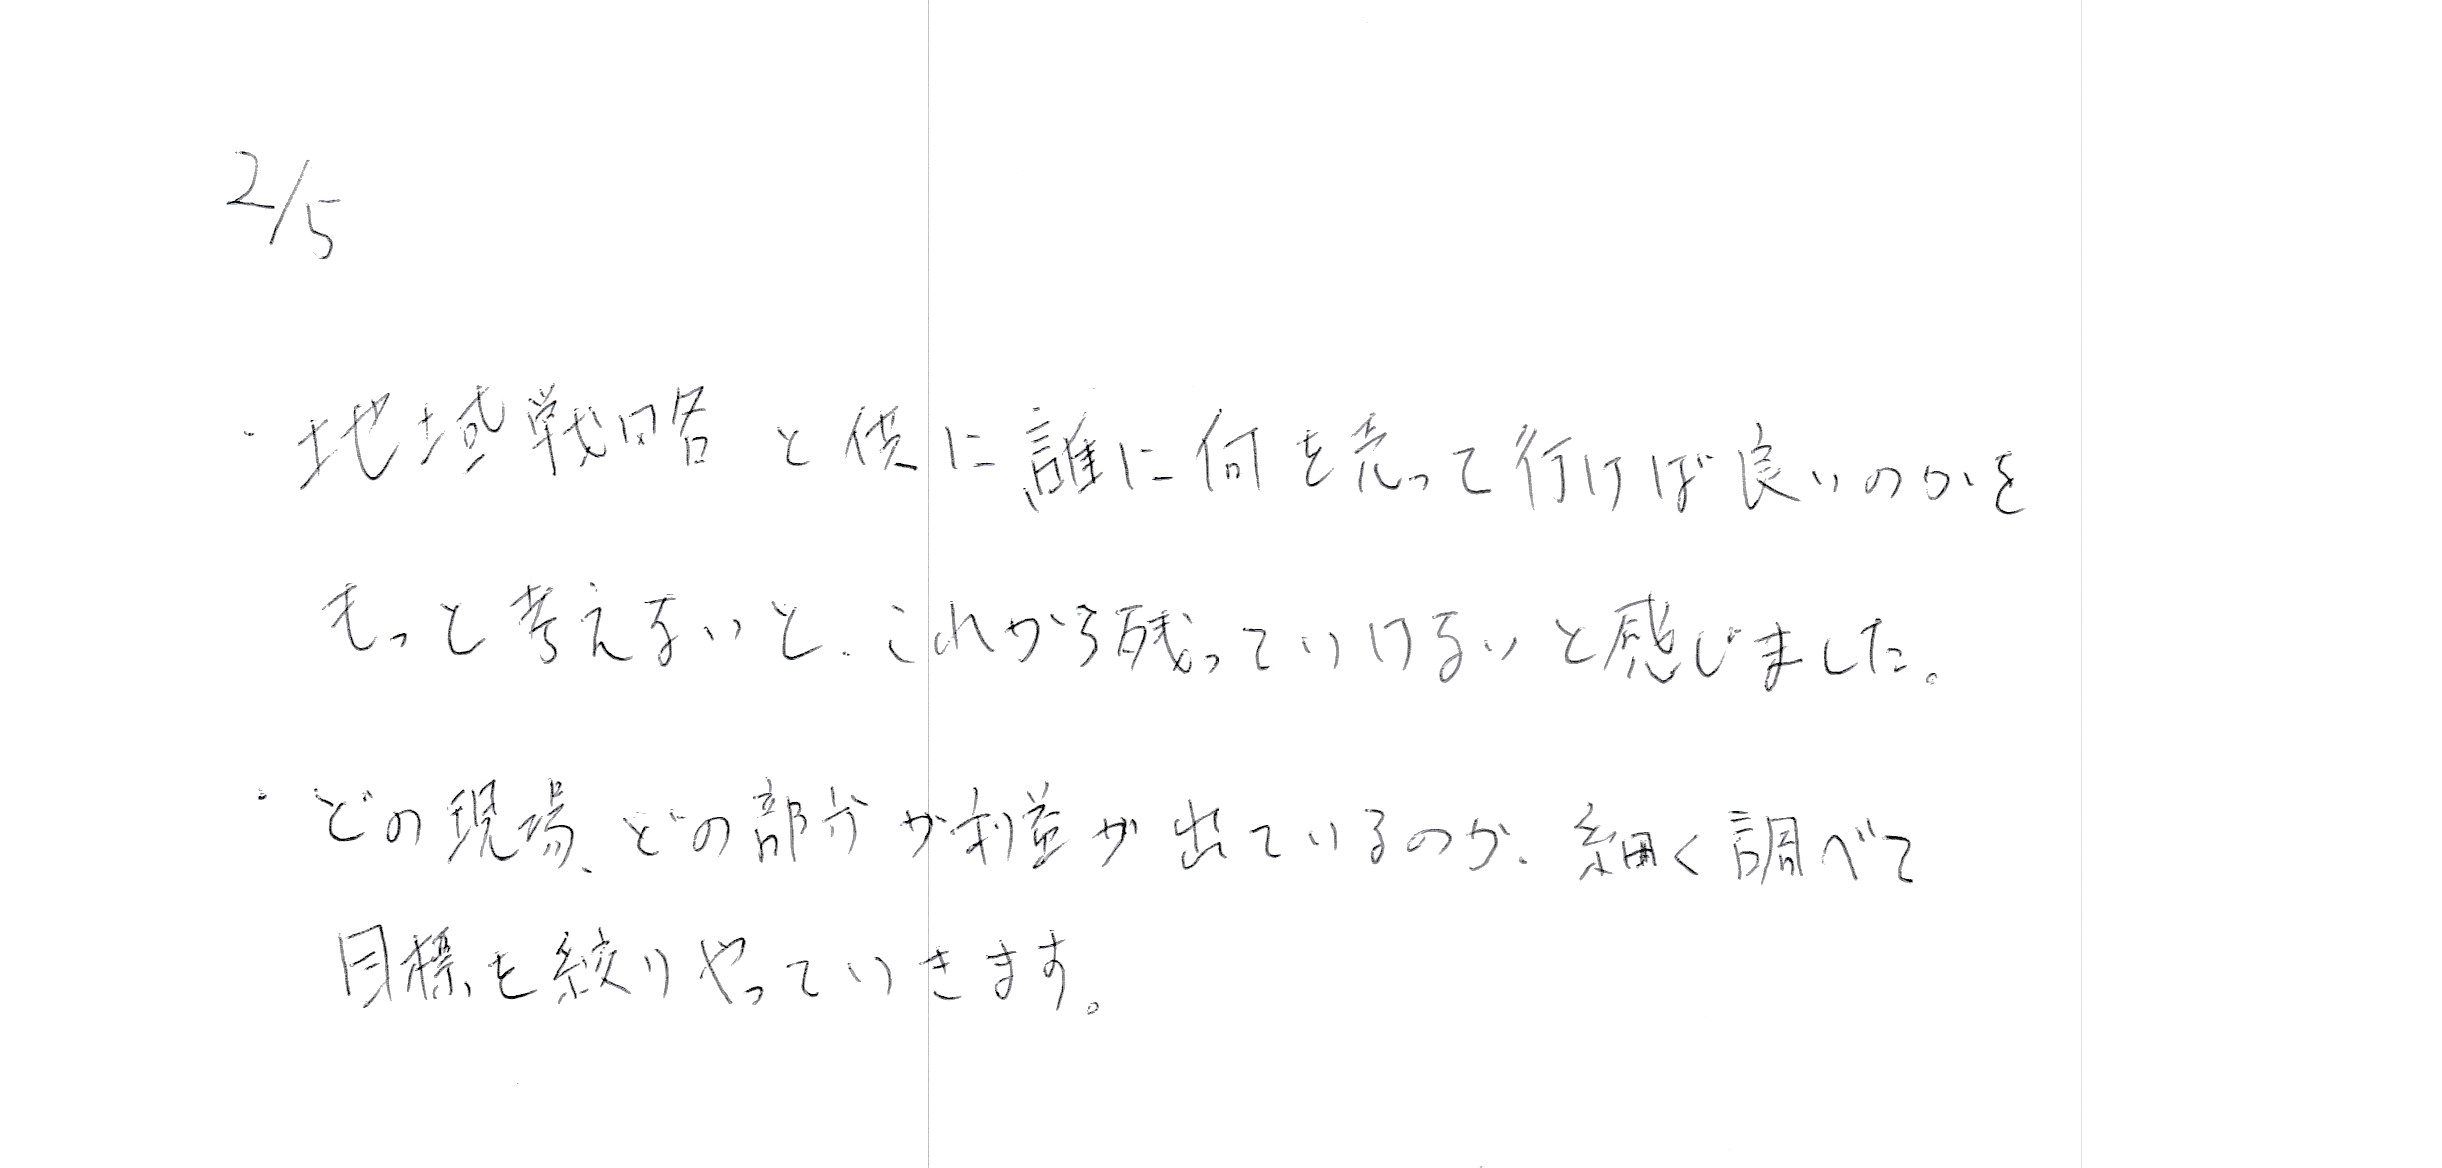 2/5
・地域戦略と供に誰に何を売って行けば良いのかを
もっと考えないと、これから残っていけないと感じました。
・どの現場、どの部分が利益が出ているのか、細く調べて
目標を絞りやっていきます。